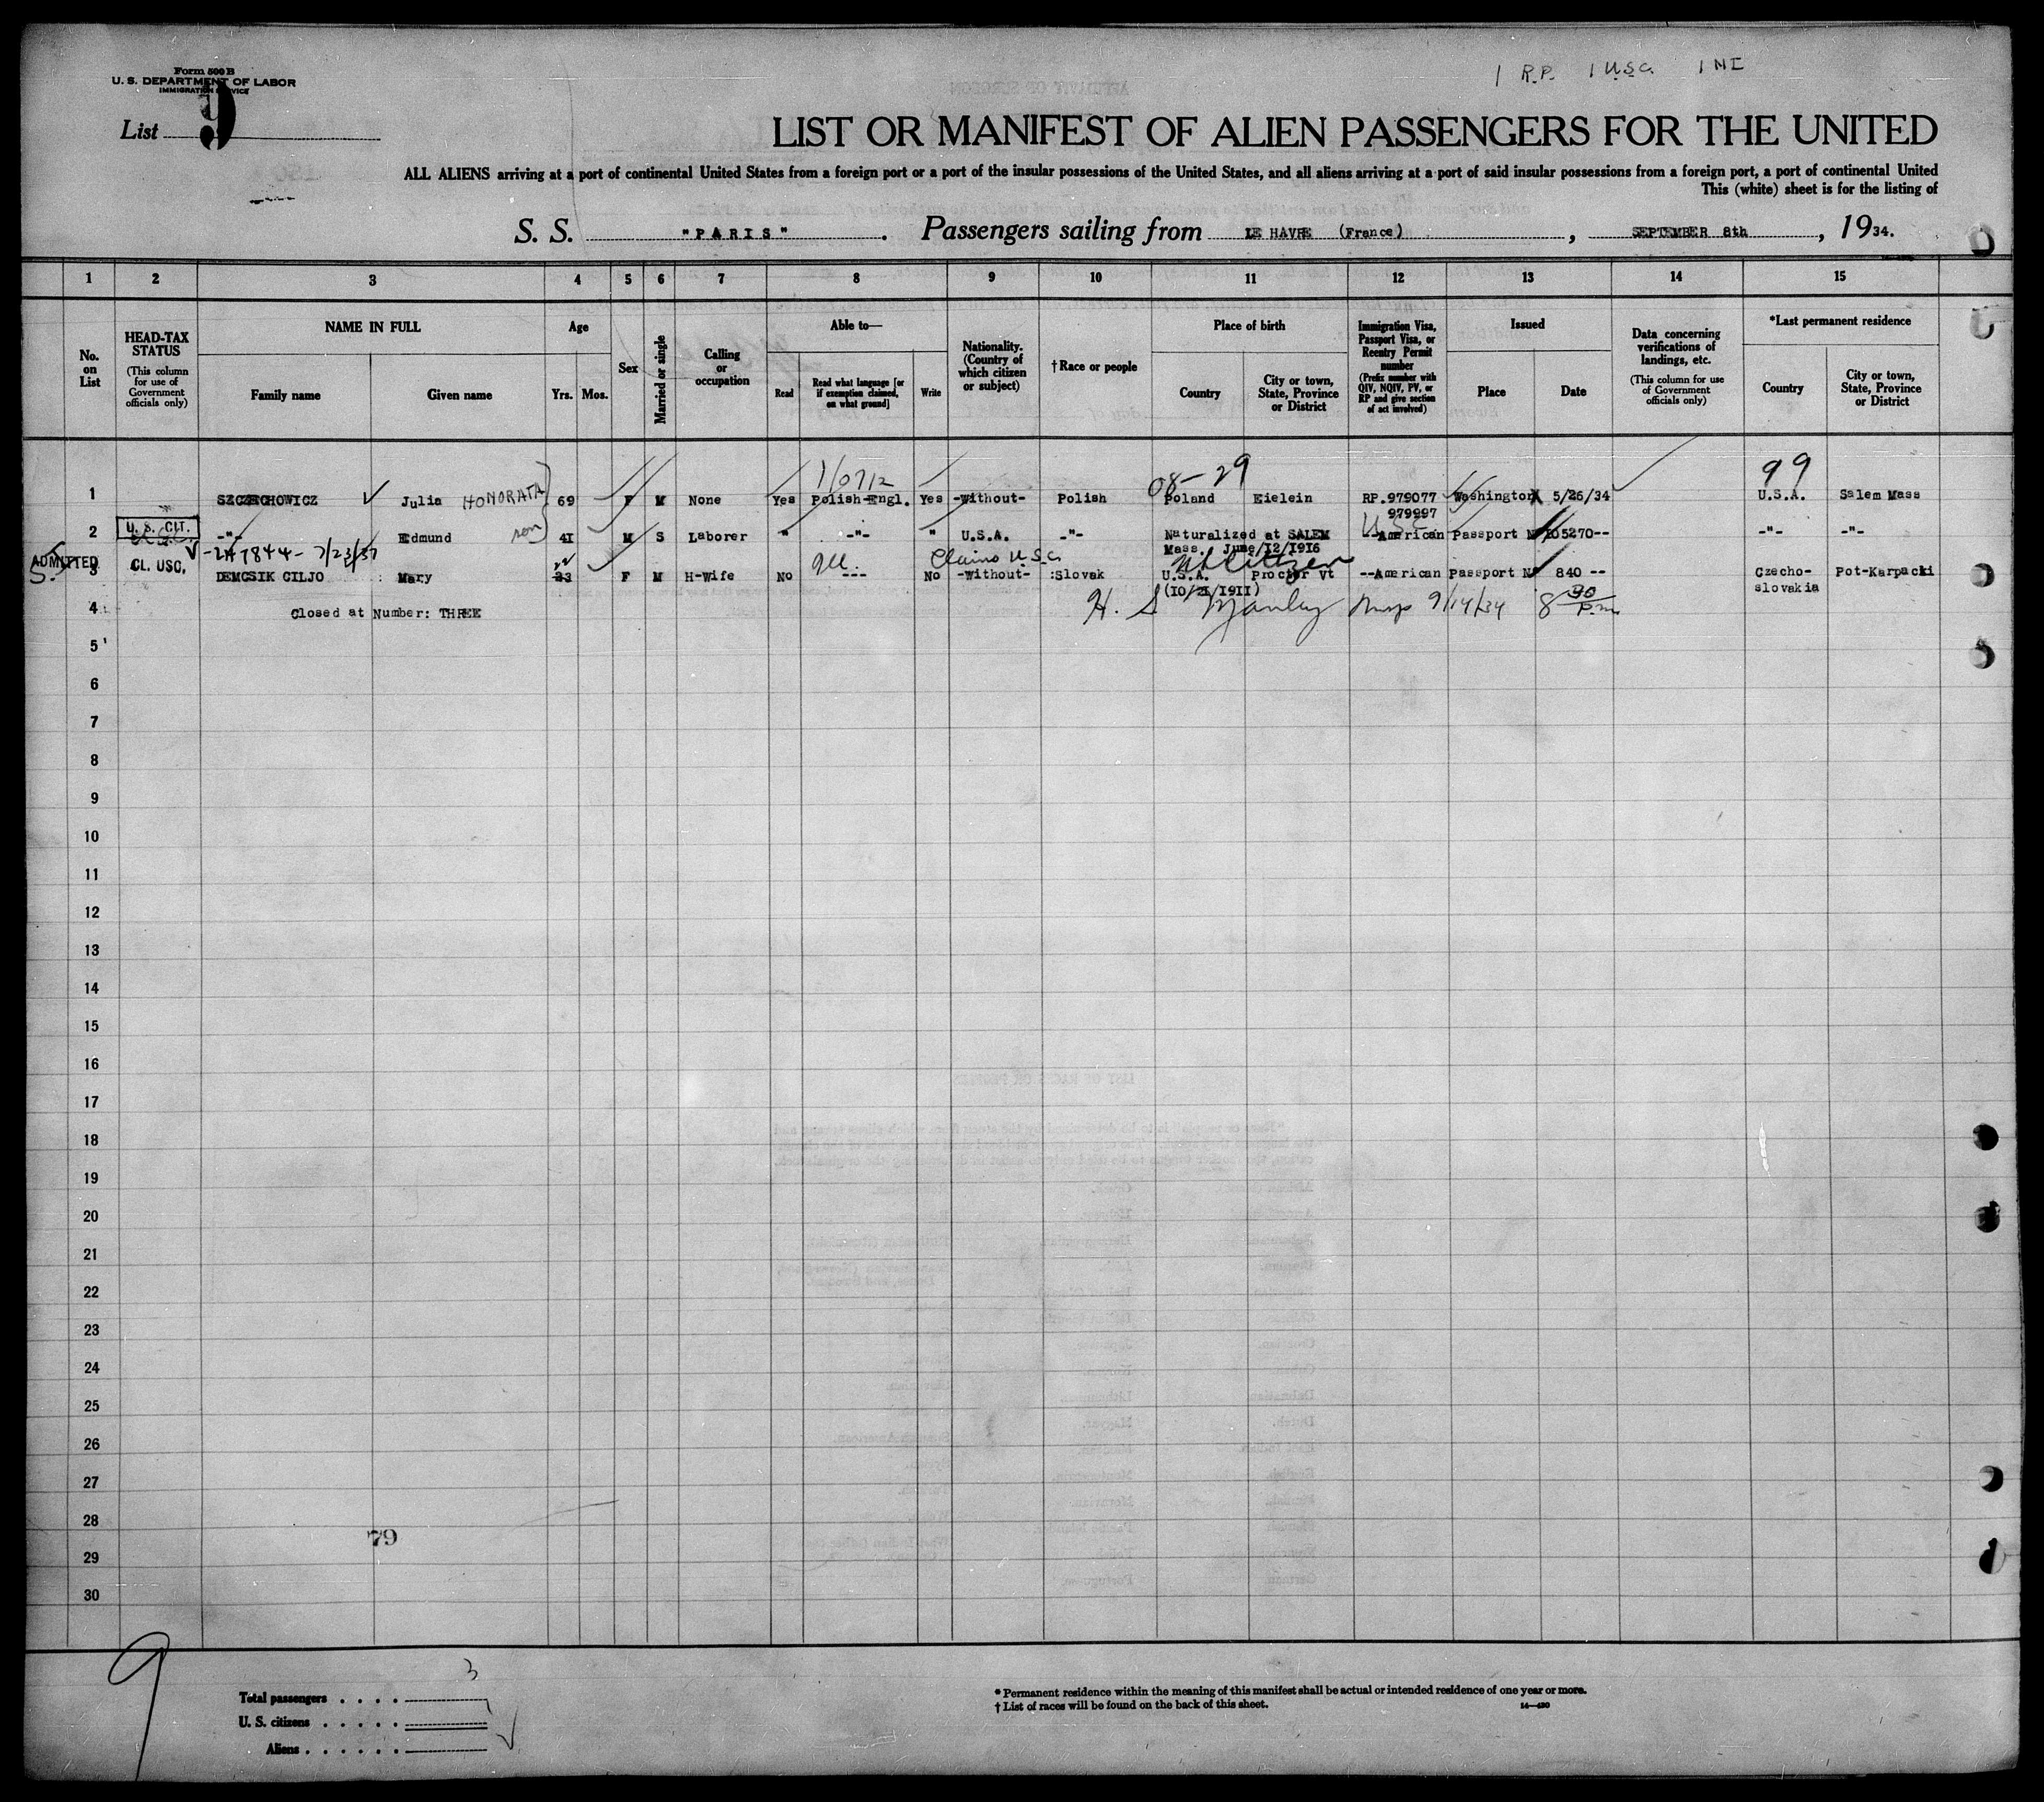 1 R.P. 1 U.S.C. 1 NI
Form 500 B
U. S. DEPARTMENT OF LABOR
IMMIGRATION SERVICE
List 9
LIST OR MANIFEST OF ALIEN PASSENGERS FOR THE UNITED
ALL ALIENS arriving at a port of continental United States from a foreign port or a port of the insular possessions of the United States, and all aliens arriving at a port of said insular possessions from a foreign port, a port of continental United
This (white) sheet is for the listing of
S. S. "PARIS". Passengers sailing from LE HAVRE (France), SEPTEMBER 8th, 1934.
1 2 3 4 5 6 7 8 9 10 11 12 13 14 15
No. on List
HEAD-TAX STATUS (This column for use of Government officials only)
NAME IN FULL
Family name
Given name
Age
Yrs. Mos.
Sex
Married or single
Calling or occupation
Able to—
Read
Read what language [or if exemption claimed, on what ground]
Write
Nationality. (Country of which citizen or subject)
†Race or people
Place of birth
Country
City or town, State, Province or District
Immigration Visa, Passport Visa, or Reentry Permit number (Prefix number with QIV, NQIV, PV, or RP and give section of act involved)
Issued
Place
Date
Data concerning verifications of landings, etc. (This column for use of Government officials only)
*Last permanent residence
Country
City or town, State, Province or District
08-29 99
1 SZCZECHOWICZ Julia HONORATA 69 F M None Yes Polish-Engl. Yes -Without- Polish Poland Eielein RP.979077 Washington 5/26/34 U.S.A. Salem Mass
979997
U. S. CIT.
2 -"- Edmund son 41 M S Laborer " -"- " U.S.A. -"- Naturalized at SALEM --American Passport N° 105270-- -"- -"-
Mass. June/12/1916
7/23/37
ADMITTED CL. USC. Claims U.S.C.
3 DEMCSIK CILJO Mary 23 F M H-Wife No --- No -Without- :Slovak U.S.A. Proctor Vt --American Passport N° 840 -- Czecho-slovakia Pot-Karpacki
(10/21/1911)
4 Closed at Number: THREE
H. S. Manley Insp 9/14/34 8 30 P.m.
5
6
7
8
9
10
11
12
13
14
15
16
17
18
19
20
21
22
23
24
25
26
27
28
79
29
30
9
3
Total passengers
U. S. citizens
Aliens
* Permanent residence within the meaning of this manifest shall be actual or intended residence of one year or more.
† List of races will be found on the back of this sheet.
14—430